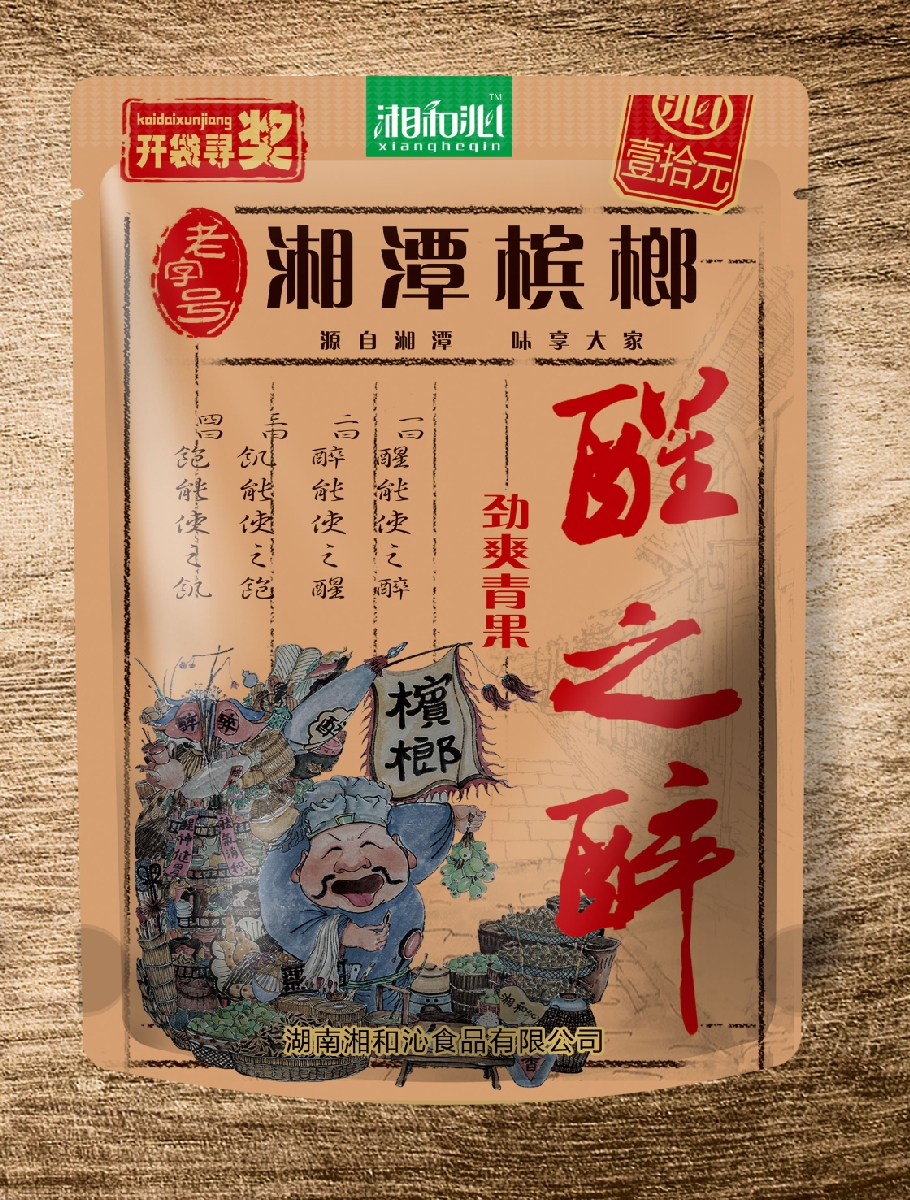 kaidaixunjiang
开袋寻奖
湘和沁™
xiangheqin
沁
壹拾元
老字号
湘潭槟榔
源自湘潭 味享大家
醒之醉
劲爽青果
一曰
醒能使之醉
二曰
醉能使之醒
三曰
飢能使之飽
四曰
飽能使之飢
檳榔
湖南湘和沁食品有限公司